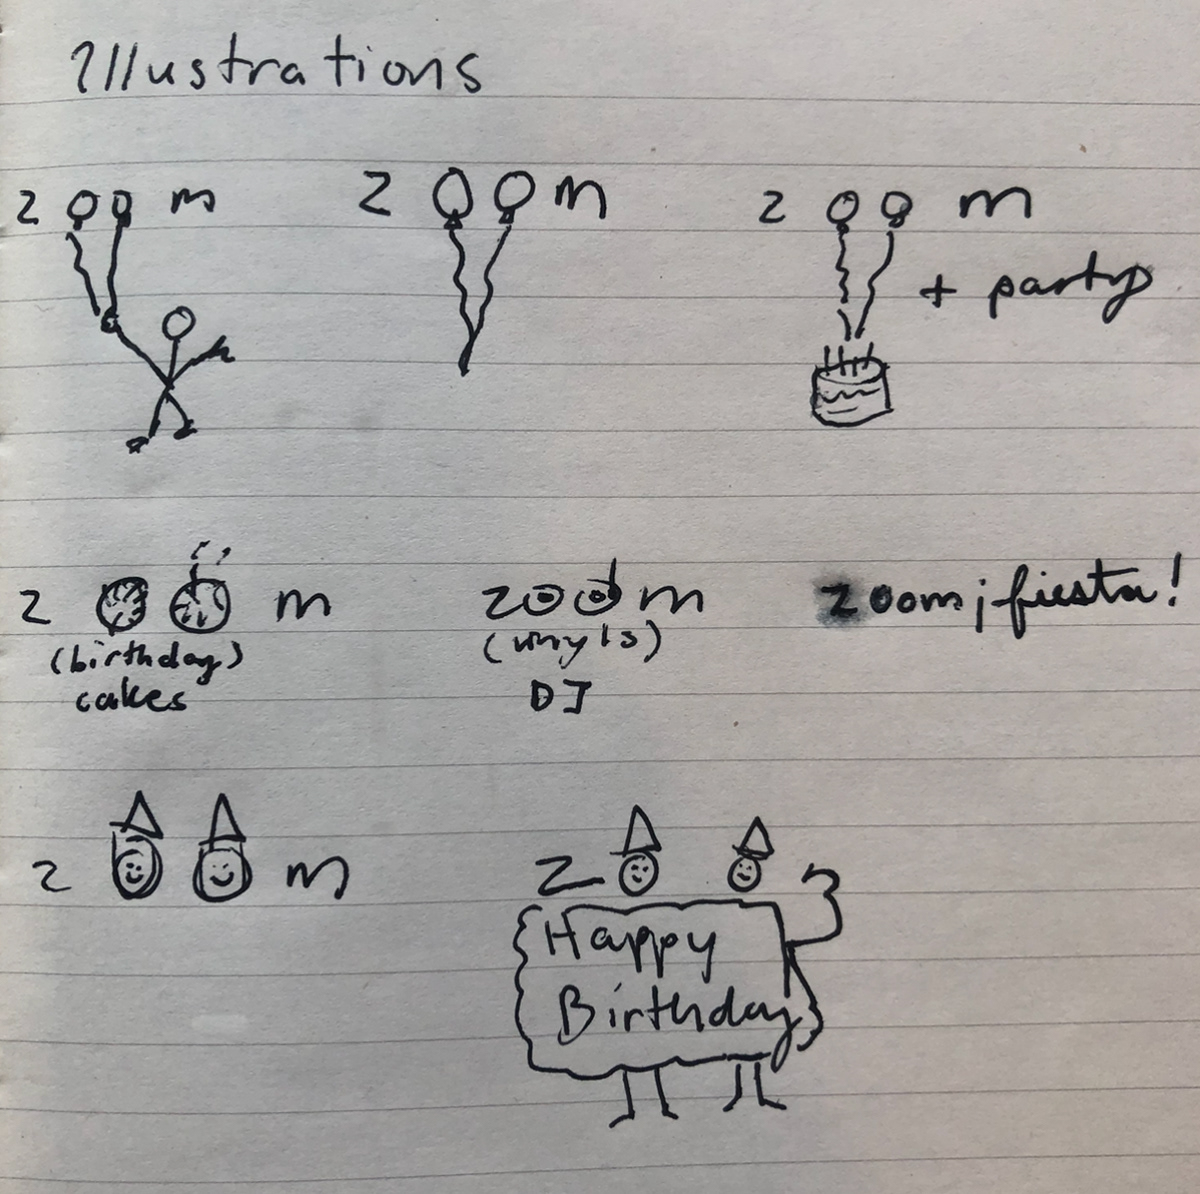 Illustrations
zoom
zoom
zoom
+ party
zoom
(birthday)
cakes
zoom
(vinyls)
DJ
zoom ¡fiesta!
zoom
zoom
Happy
Birthday